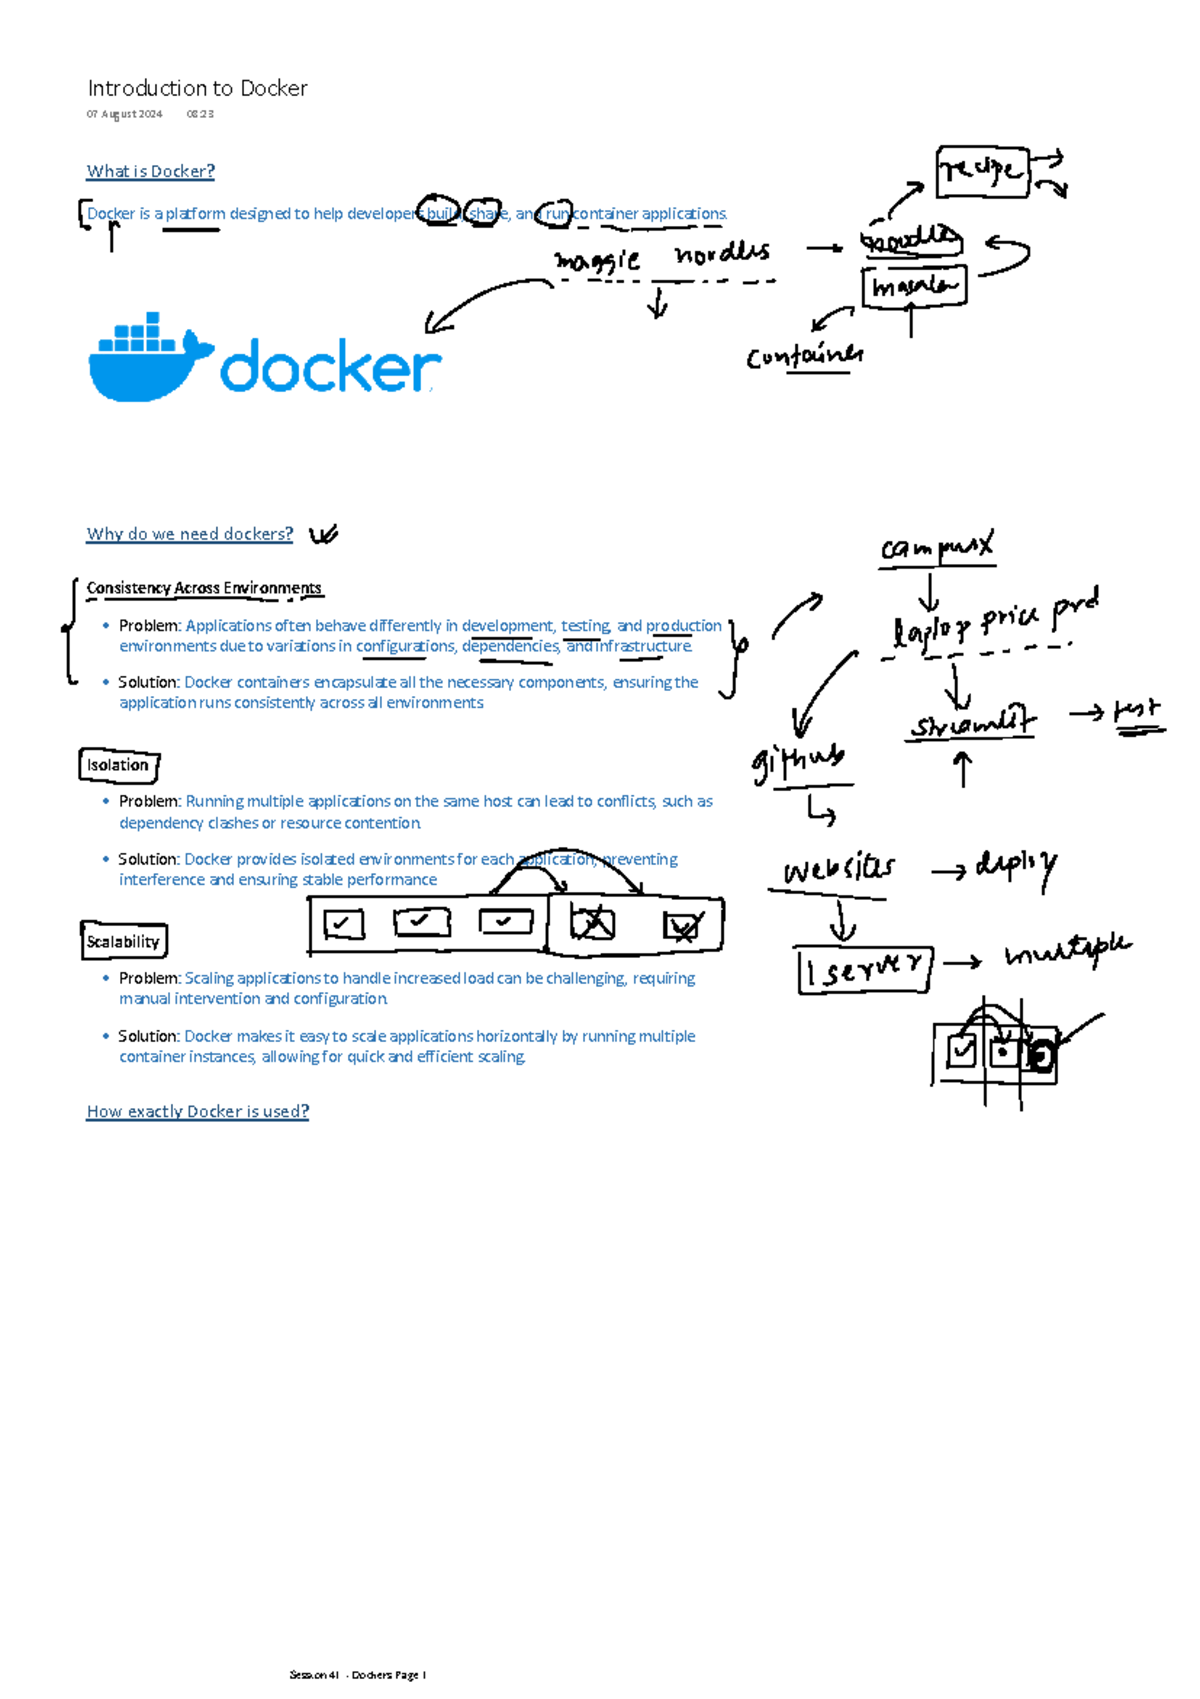 Introduction to Docker
07 August 2024 08:23
What is Docker?
Docker is a platform designed to help developers build, share, and run container applications.
recipe
maggie noodles
noodles
masala
container
docker
Why do we need dockers?
Consistency Across Environments
Problem: Applications often behave differently in development, testing, and production
environments due to variations in configurations, dependencies, and infrastructure.
Solution: Docker containers encapsulate all the necessary components, ensuring the
application runs consistently across all environments
campusx
laptop price prd
streamlit → test
github
Isolation
Problem: Running multiple applications on the same host can lead to conflicts, such as
dependency clashes or resource contention.
Solution: Docker provides isolated environments for each application, preventing
interference and ensuring stable performance
websites → deploy
1 server → multiple
Scalability
Problem: Scaling applications to handle increased load can be challenging, requiring
manual intervention and configuration.
Solution: Docker makes it easy to scale applications horizontally by running multiple
container instances, allowing for quick and efficient scaling.
How exactly Docker is used?
Session 41 - Dockers Page 1